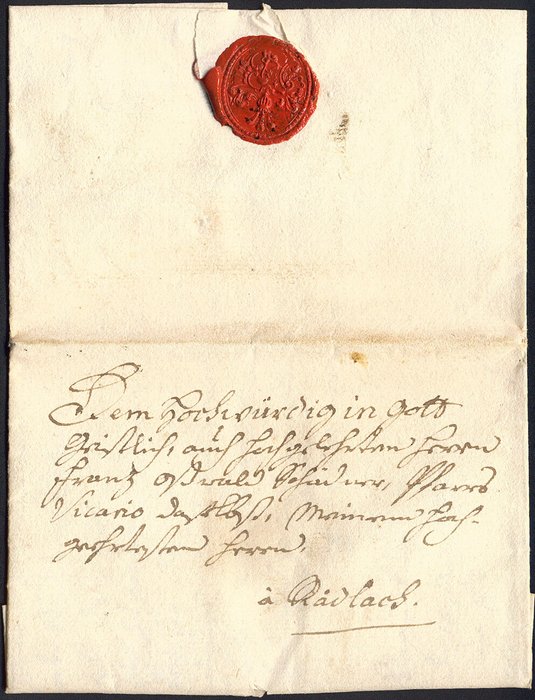 Dem Hochwürdig in Gott
Geistlich, auch Hochgelehrten Herren
Frantz Oßwald Schädner, Pfarrs
Vicario daselbst, Meinem Hoch-
geehrtesten Herren,
à Radlach.